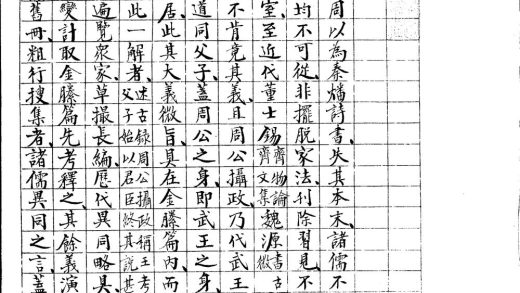 周以為秦燔詩書、失其本末、諸儒不
均不可從、非擺脫家法、刊除習見、不
室、至近代董士錫齊物論齋文集魏源書古微
不肯竟其義、且周公攝政、乃代武王
道同父子、蓋周公之身、即武王之身、
居、此其大義微旨、具在金縢篇內、而
此一解者、述古錄周公攝政稱王考父子始以君臣終其說甚
遍覽眾家、草撮長編、歷代異同略具、
變計取金縢篇、先考釋之、其餘義演
舊冊、粗行搜集者、諸儒異同之言、蓋